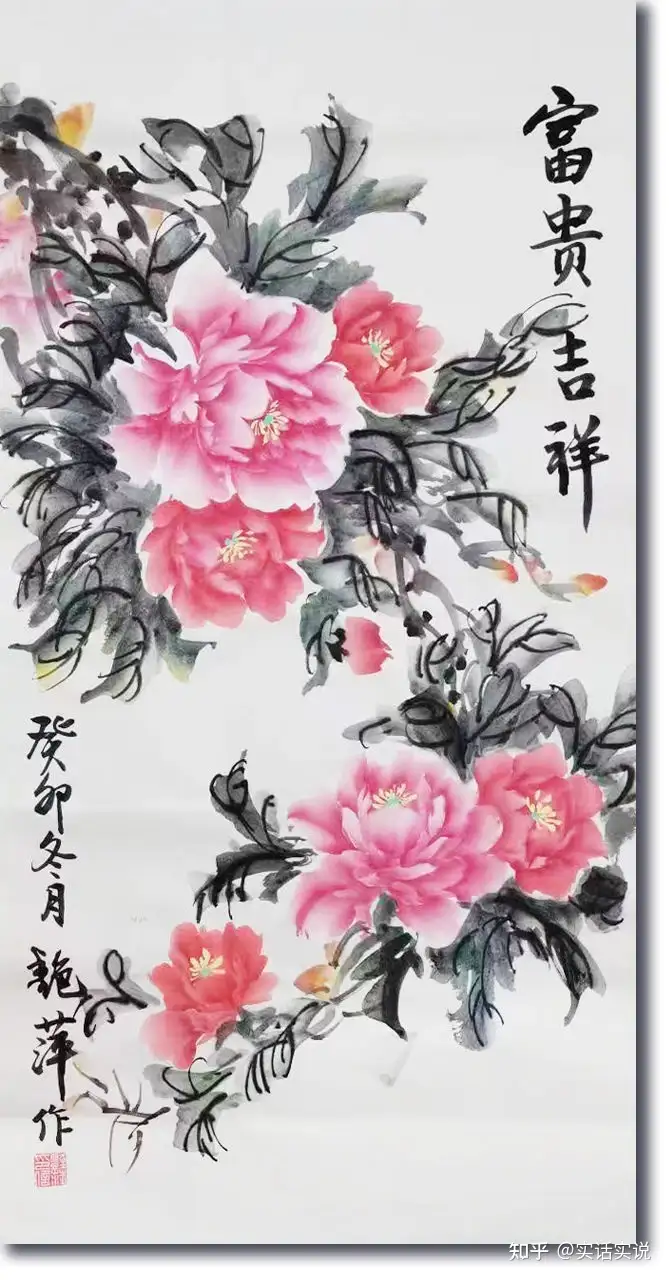 富贵吉祥
癸卯冬月 萍作
知乎 @实话实说